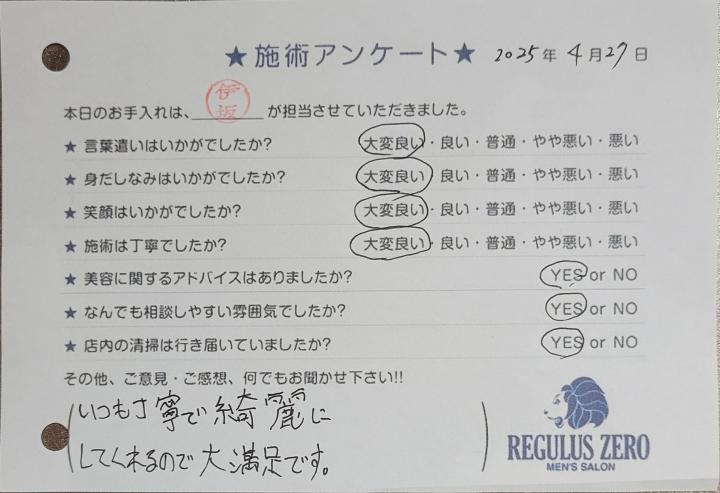 ★施術アンケート★ 2025年 4月27日
本日のお手入れは、伊坂が担当させていただきました。
★ 言葉遣いはいかがでしたか? 大変良い・良い・普通・やや悪い・悪い
★ 身だしなみはいかがでしたか? 大変良い・良い・普通・やや悪い・悪い
★ 笑顔はいかがでしたか? 大変良い・良い・普通・やや悪い・悪い
★ 施術は丁寧でしたか? 大変良い・良い・普通・やや悪い・悪い
★ 美容に関するアドバイスはありましたか? YES or NO
★ なんでも相談しやすい雰囲気でしたか? YES or NO
★ 店内の清掃は行き届いていましたか? YES or NO
その他、ご意見・ご感想、何でもお聞かせ下さい!!
いつも丁寧で綺麗に
してくれるので大満足です。
REGULUS ZERO
MEN'S SALON